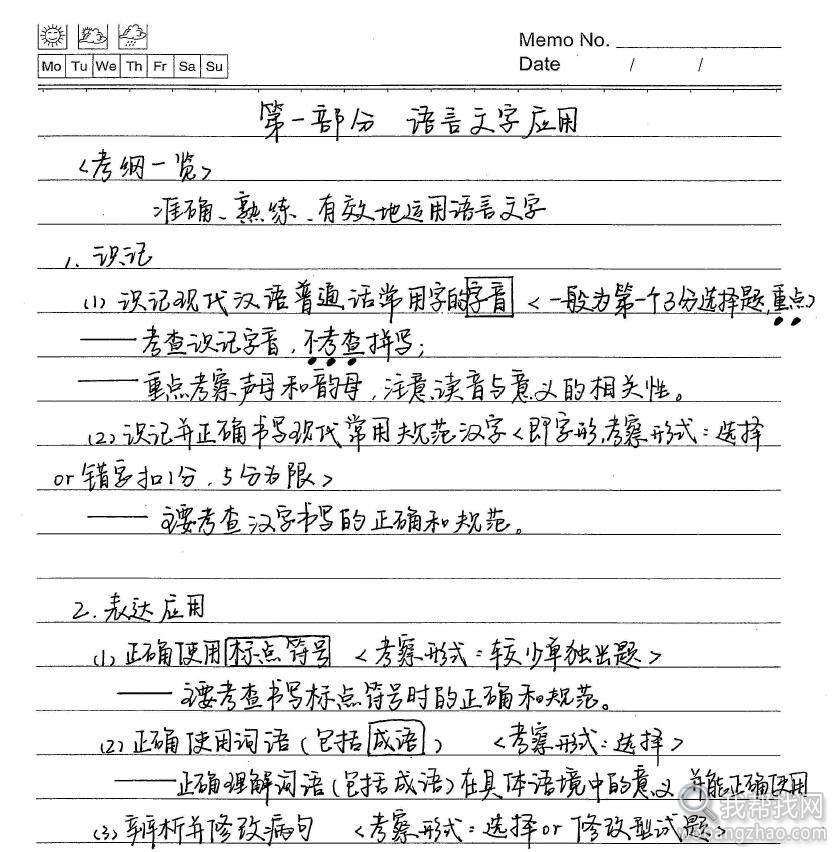 Memo No.
Mo Tu We Th Fr Sa Su
Date / /
第一部分 语言文字应用
<考纲一览>
准确、熟练、有效地运用语言文字
1. 识记
(1) 识记现代汉语普通话常用字的字音 <一般为第一个3分选择题,重点>
——考查识记字音,不考查拼写;
——重点考察声母和韵母,注意读音与意义的相关性。
(2) 识记并正确书写现代常用规范汉字<即字形,考察形式:选择
or 错字扣1分,5分为限>
—— 主要考查汉字书写的正确和规范。
2. 表达应用
(1) 正确使用标点符号 <考察形式:较少单独出题>
—— 主要考查书写标点符号时的正确和规范。
(2) 正确使用词语(包括成语) <考察形式:选择>
——正确理解词语(包括成语)在具体语境中的意义,并能正确使用
(3) 辨析并修改病句 <考察形式:选择or 修改型试题>
我帮找网
wobangzhao.com